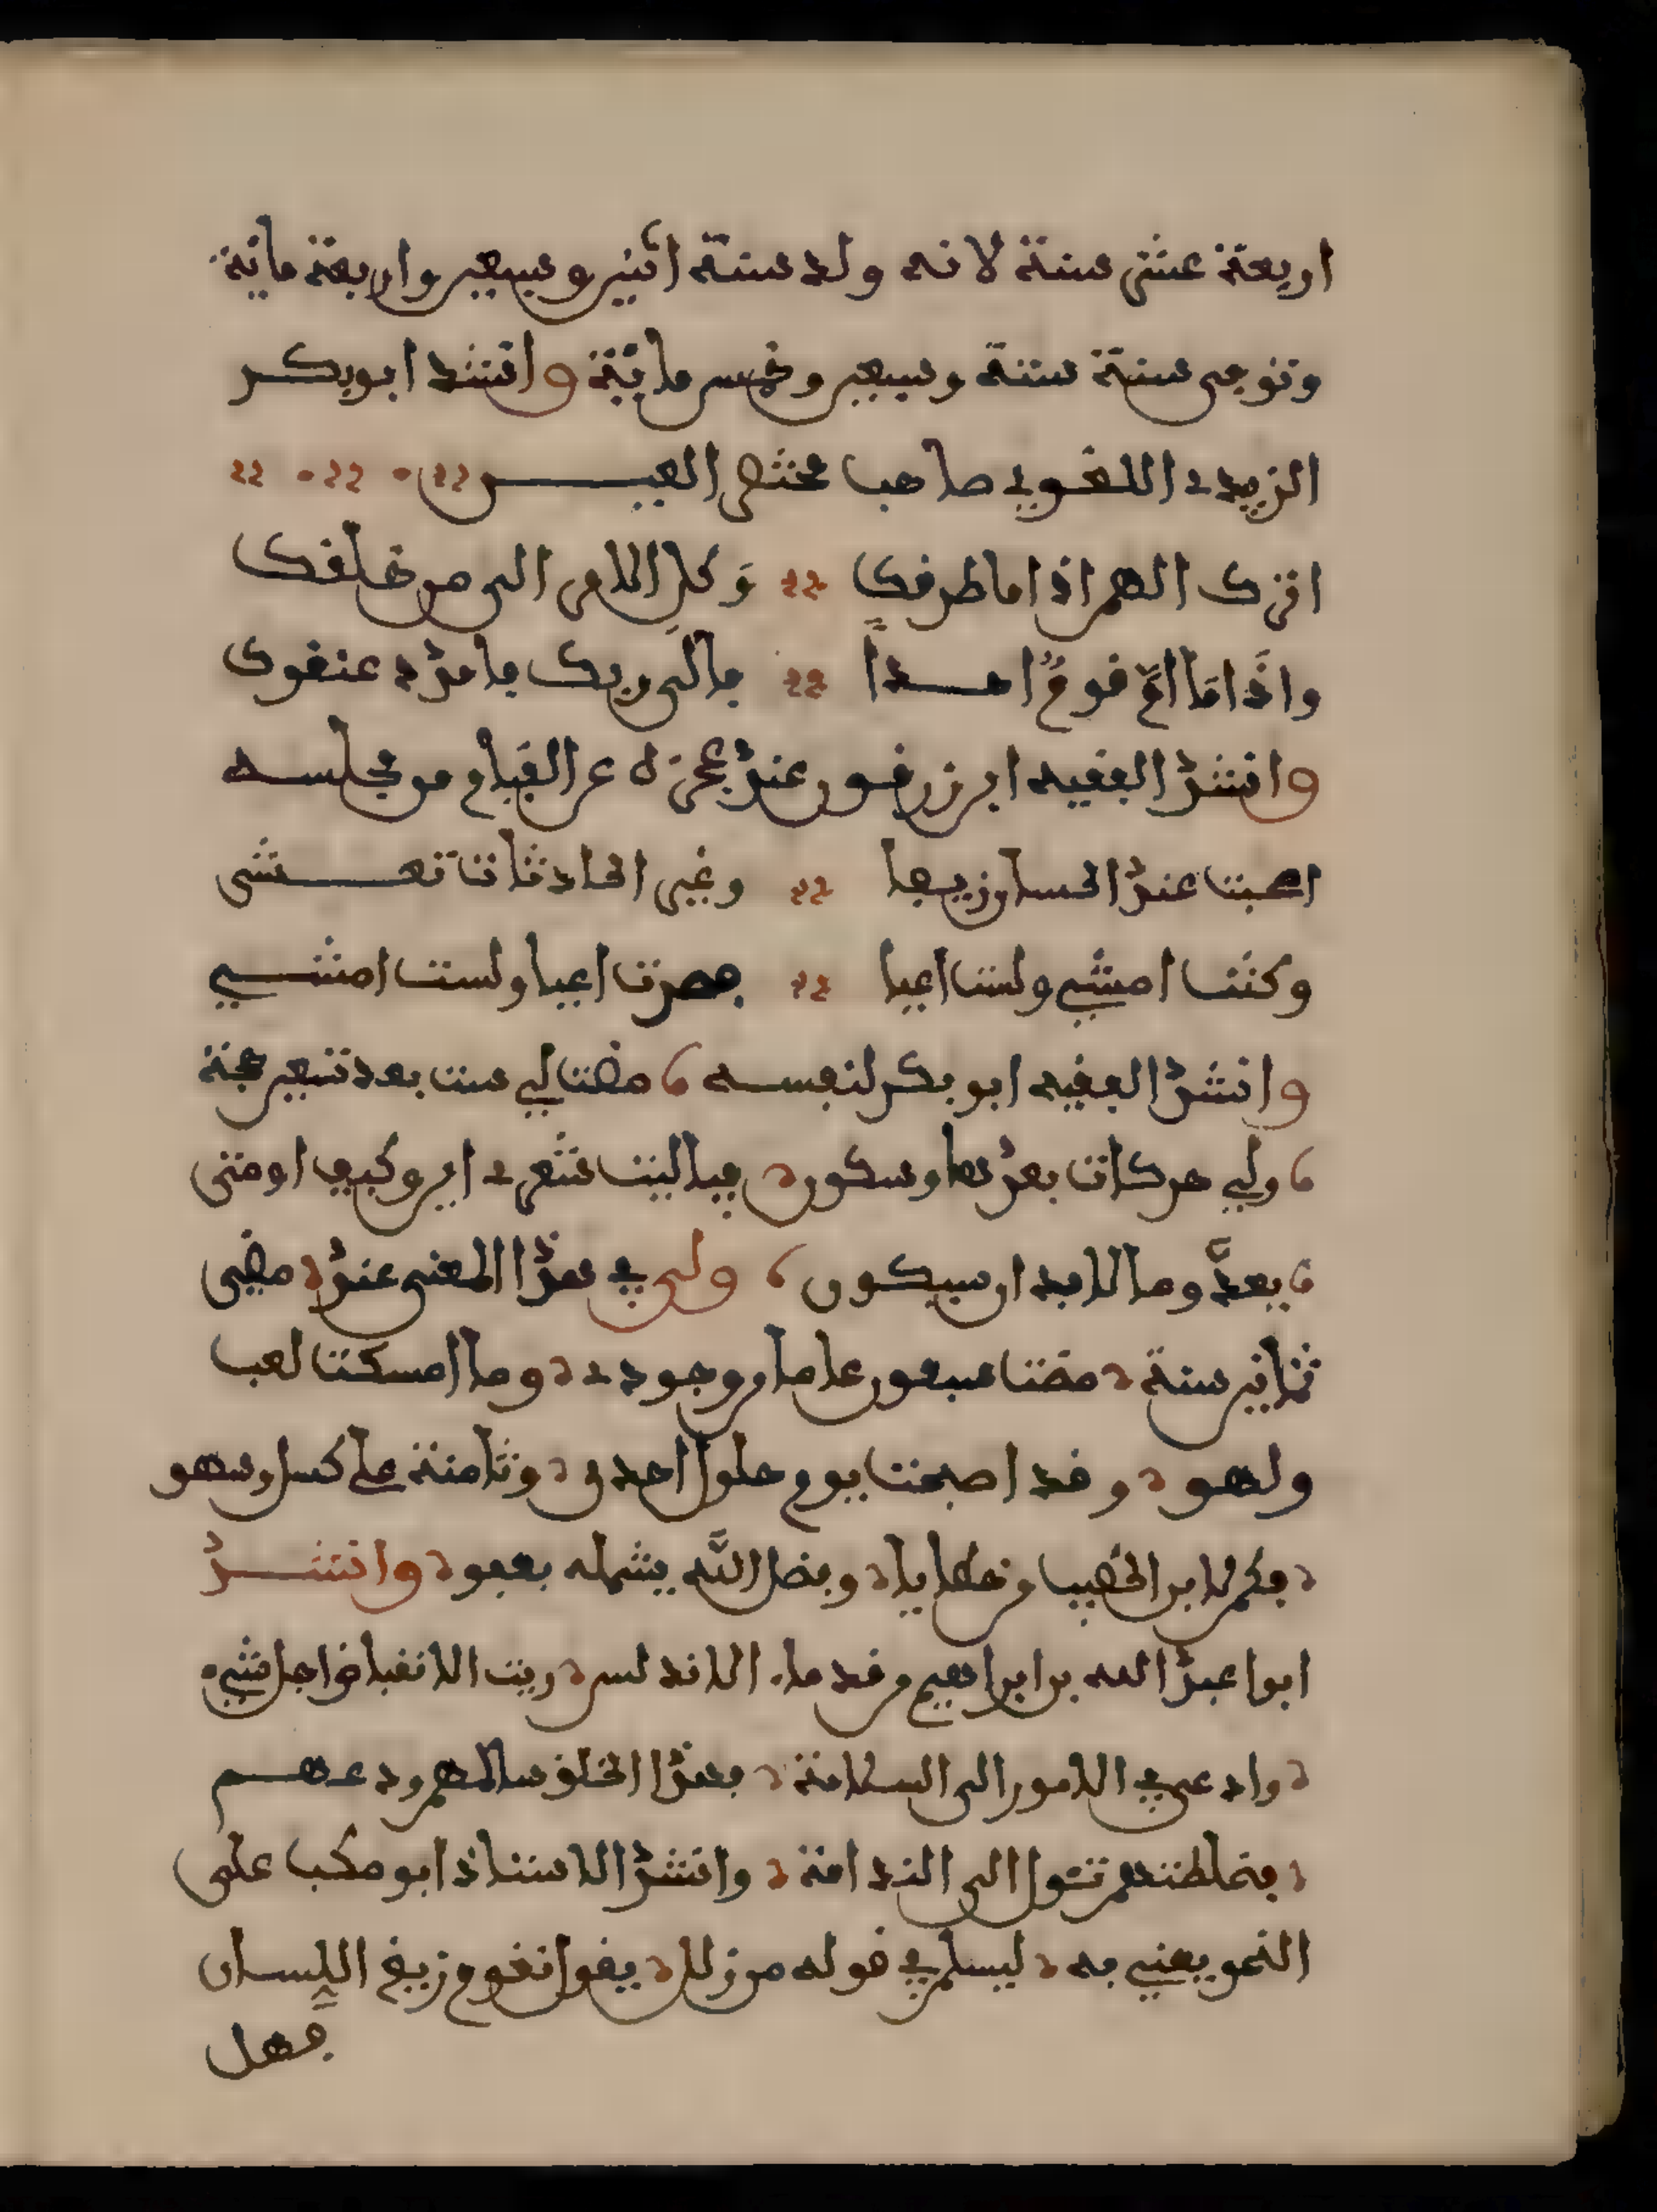 اربعة عشر سنة لانه ولد سنة اثنين وسبعين واربعة مائة
وتوفي سنة ستة وسبعين وخمس مائة وانشد ابو بكر
الزبيدي اللغوي صاحب مختصر العين
اترك الهم اذا ما طرقك وكل الامر الى من خلقك
واذا ما ام قوم احدا فالى ربك فامدد عنقك
وانشد الفقيه ابن زرقون عند عجزه عن القيام من مجلسه
اصبت عند الحسان زيفا وغير الحادثات نقشي
وكنت امشي ولست اعيا فصرت اعيا ولست امشي
وانشد الفقيه ابو بكر لنفسه مضت لي ست بعد تسعين حجة
ولي حركات بعدها وسكون فيا ليت شعري اين وكيف او متى
يعد وما لا بد ان سيكون ولي في هذا المعنى عند مضي
ثمانين سنة مضت سبعون عاما من وجودي وما امسكت لعب
ولهو وقد اصبحت يوم حلول احدى وثامنة على كسل وسهو
فكم لابن الخطيب من خطايا وفضل الله يشمله بعفو وانشد
ابوا عبد الله بن ابراهيم من قدماء الاندلس ريت الانقباض اجل شيء
وادعى في الامور الى السلامة فهذا الخلق سالمهم ودعهم
فخلطتهم تئول الى الندامة وانشد الاستاذ ابو مكب على
النحو يعني به ليسلم في قوله من زلل يقول نقوم زيغ اللسان
فهل